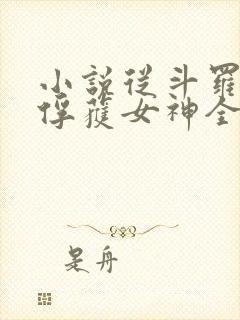 小說從斗羅
俘獲女神全
是舟